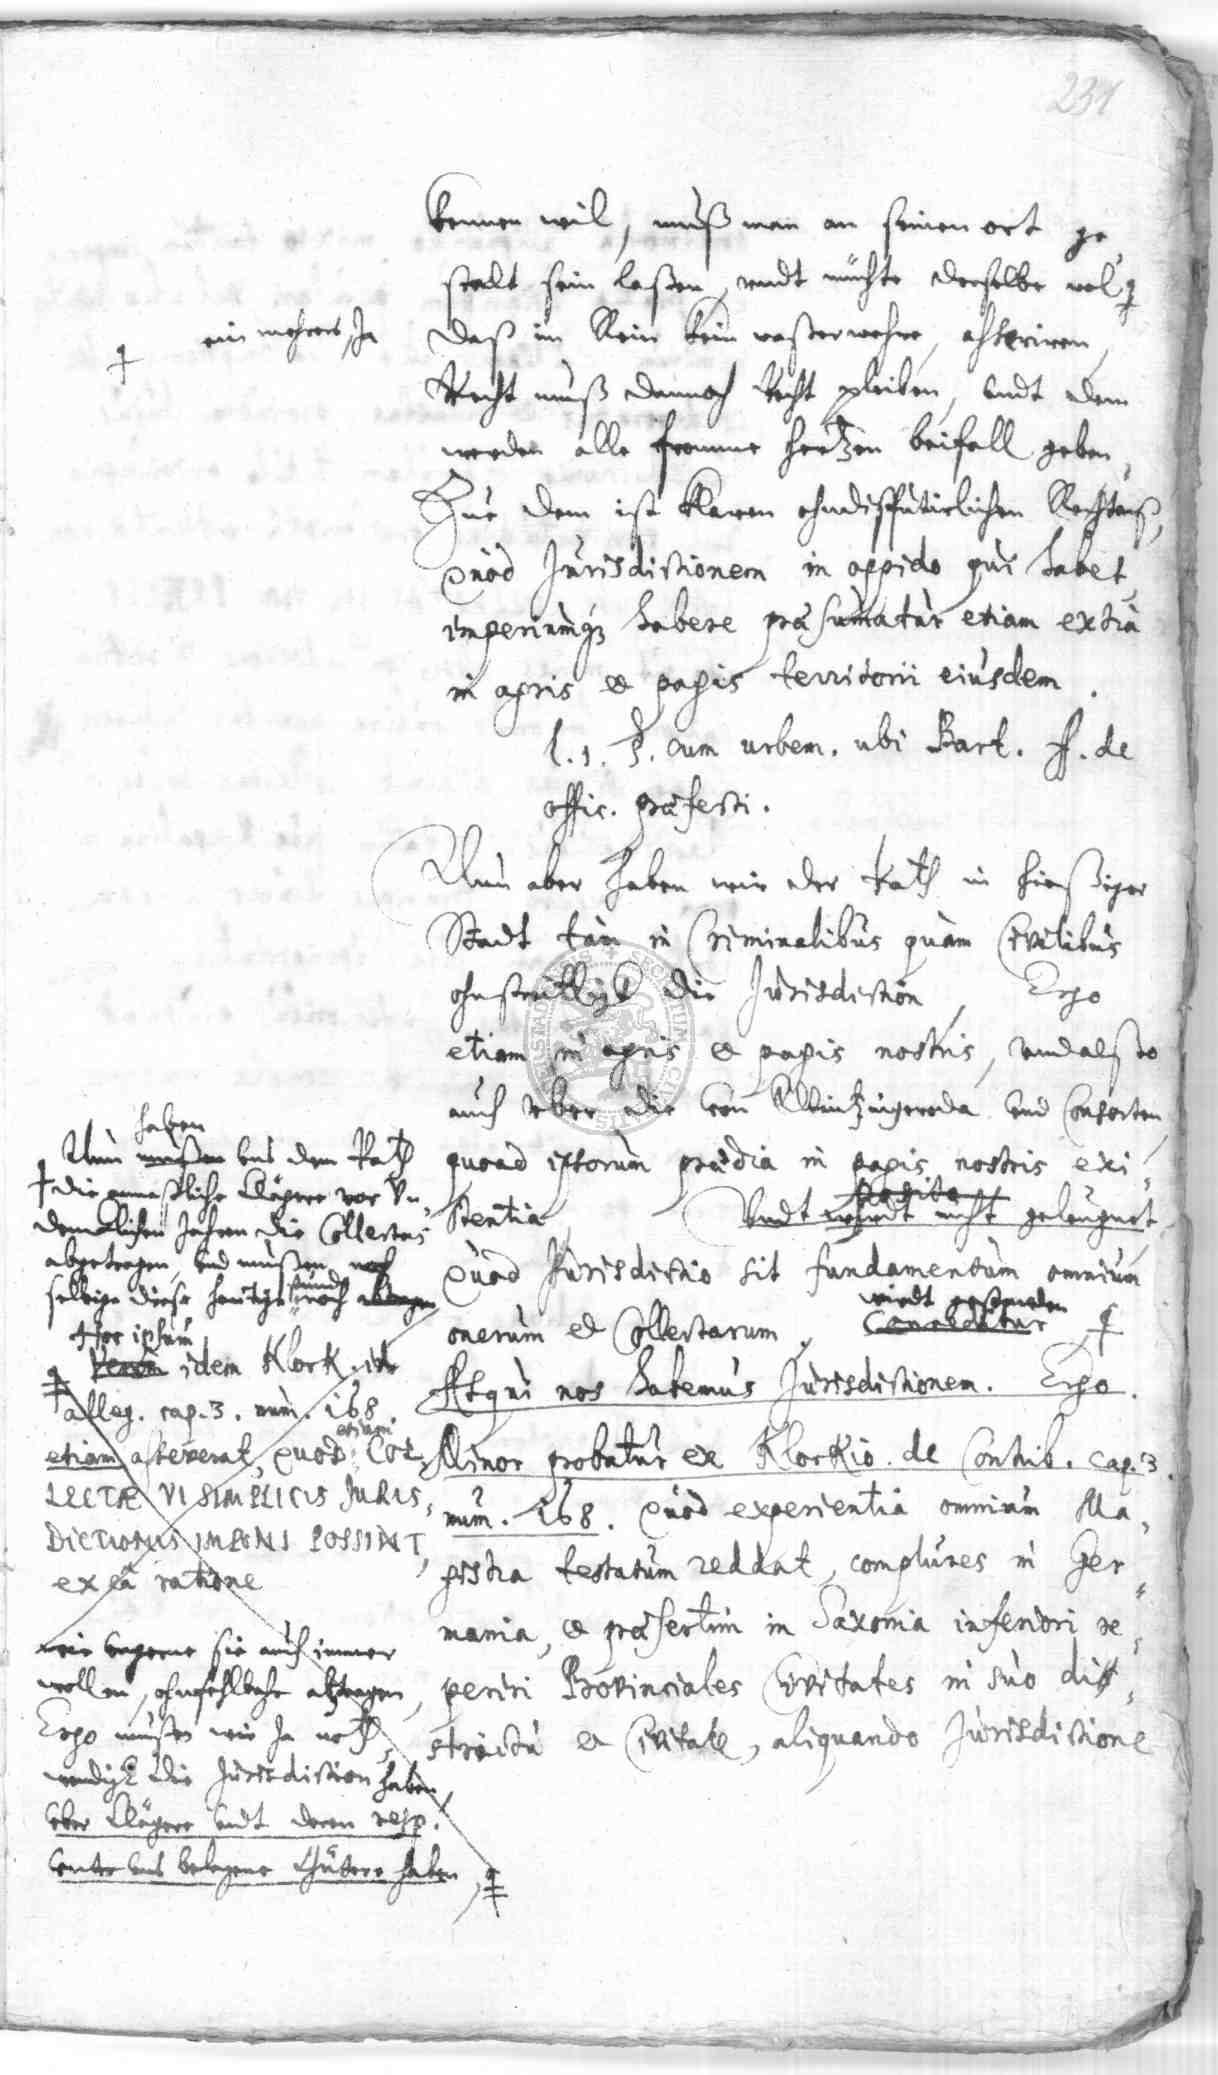 231
kennen wil, muß man an seinen ort ge
stalt sein laßen, undt möchte derselbe wol
ein mehrers, Ja
daß im Rein kein waßer wehre, asseriren,
Recht muß dannoch Recht pleiben, undt dem
werden alle fromme hertzen beifall geben,
Zue dem ist klaren ohndisputirlichen Rechtens,
quòd Jurisdictionem in oppido qui habet,
imperiumq3 habere præsumatur etiam extra
in agris et pagis territorii eiusdem.
l. 1. §. cum urbem. ubi Bart. ff. de
offic. præfecti.
Nun aber haben wir der Rath in hießiger
Stadt tàm in Criminalibus quàm Civilibus
ohnstreittigk die Jurisdiction, Ergo
etiam in agris et pagis nostris, undt alßo
auch uber die von Wintzingeroda und Consorten
quoad istorum prædia in pagis nostris exi-
stentia, Undt wirdt nicht geleugnet
Quòd Jurisdictio sit fundamentum omnium
wirdt gestanden
onerum et Collectarum, Concedatur,
Atqui nos habemus Jurisdictionem. Ergo.
Minor probatur ex Klockio de Contrib. cap. 3.
num. 168. Quòd experientia omnium Ma-
gistra testatum reddat, complures in Ger-
mania, et præsertim in Saxonia inferiori re-
periri Provinciales Civitates in suo di-
strictu et Civitate, aliquando Jurisdictione
haben
Nun müßen uns dem Rath
die anmaßliche Klägere vor Un-
dencklichen Jahren die Collectas
abgetragen, und müßen
selbige diese heutige stunde noch
Hoc ipsum
idem Klock.
alleg. cap. 3. num. 168.
etiam
etiam asseverat, quòd COL-
LECTÆ VI SIMPLICIS JURIS-
DICTIONIS IMPONI POSSINT,
ex eâ ratione
wie ungerne sie auch immer
wollen, ohnfehlbahr abtragen,
Ergo müßen wir Ja noth-
wendigk die Jurisdiction haben,
uber Klägere undt deren resp.
unter uns belegene Gütere haben,